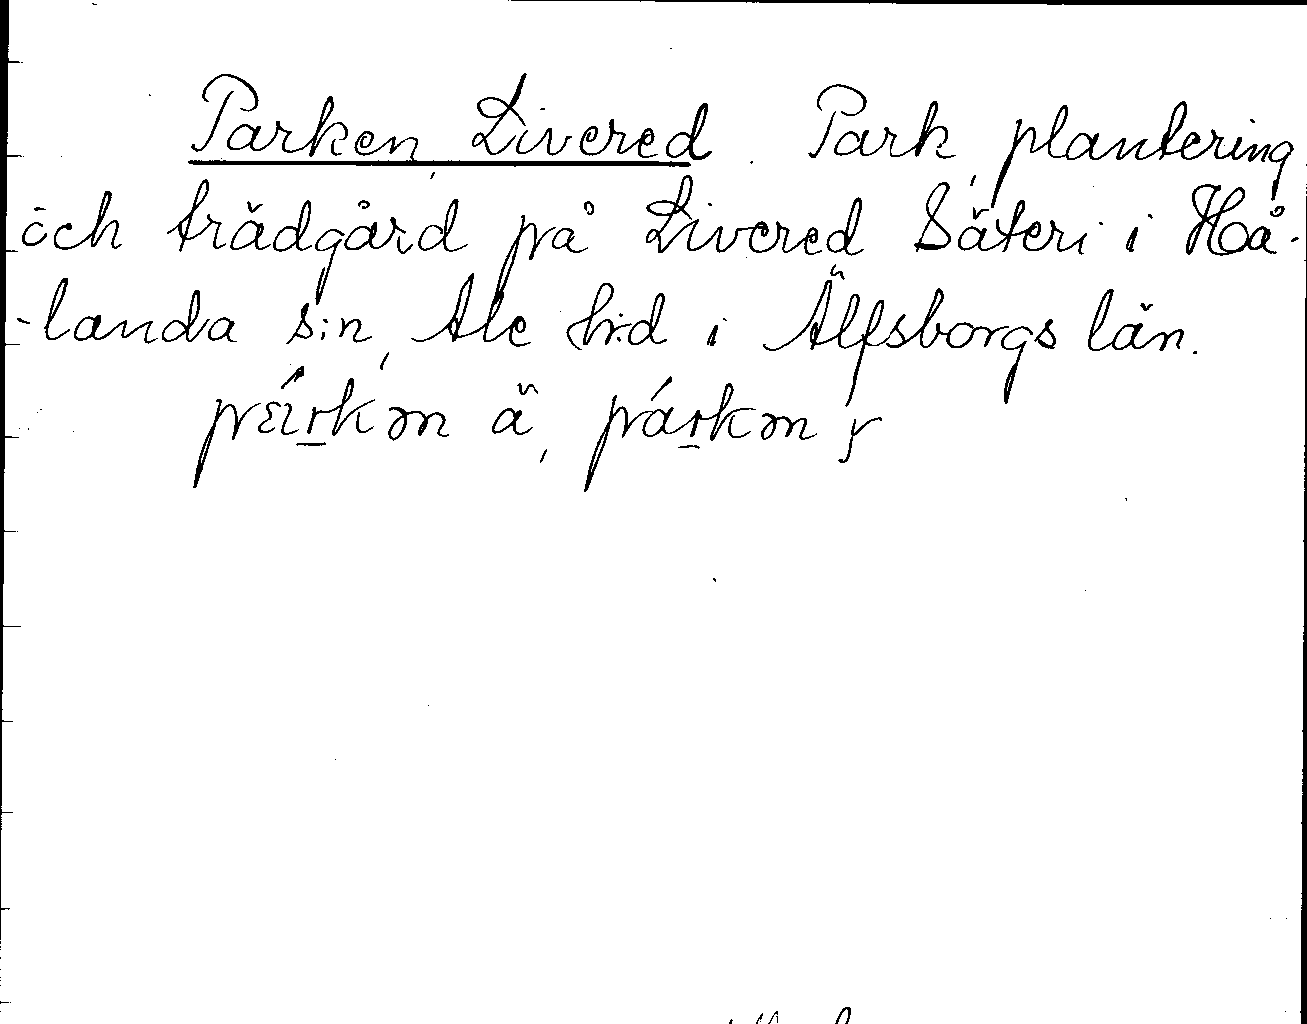 Parken, Livered. Park, plantering
och trädgård på Livered Säteri i Hå-
-landa s:n, Ale h:d i Älfsborgs län.
párkən ä, párkən y